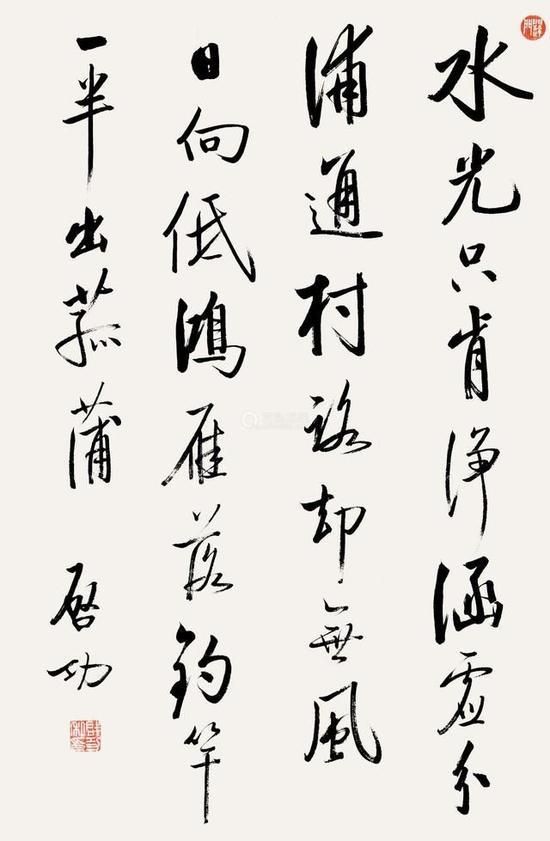 水光只肯淨涵虛分
浦通村路却無風
日向低鴻雁落釣竿
一半出菰蒲
启功